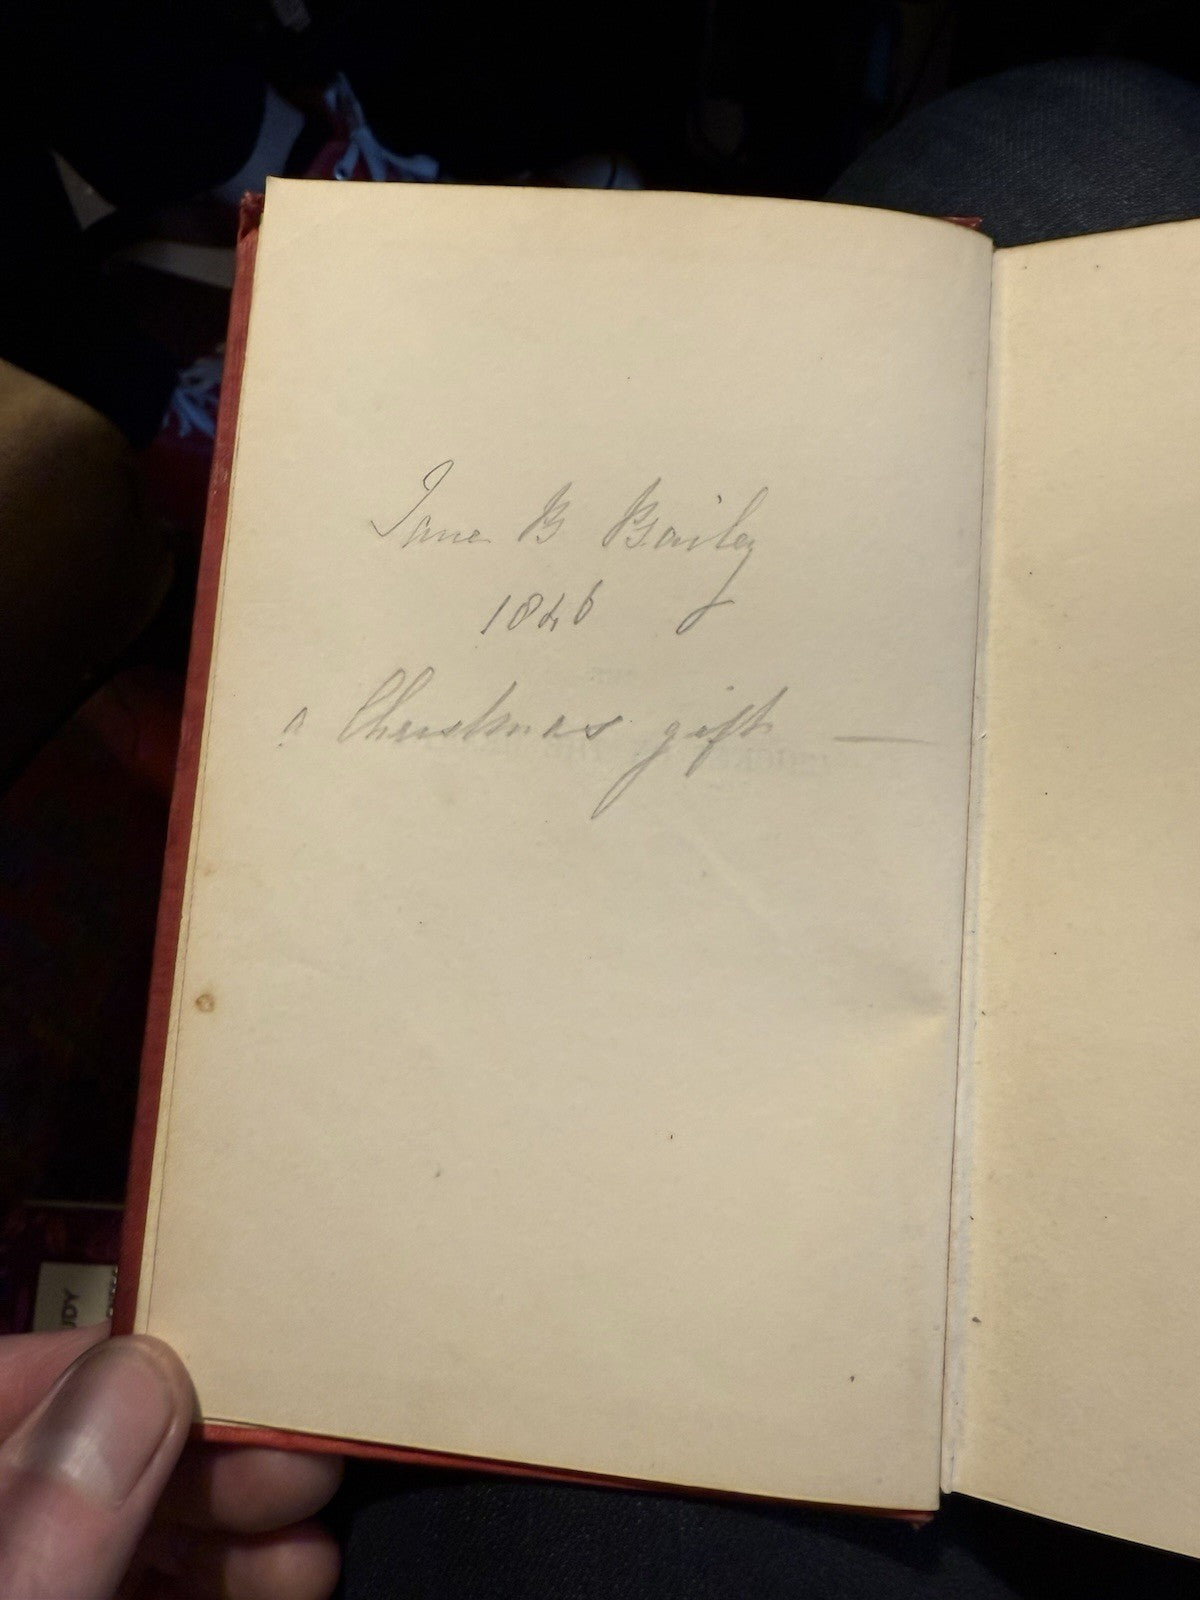 Jane B Bailey
1846
a Christmas gift —
UDY